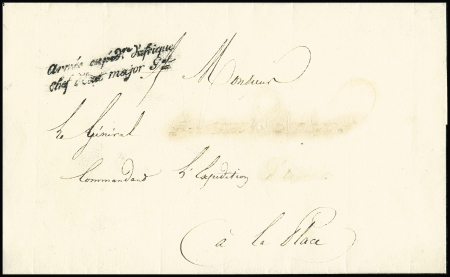 Armée expédre d'afrique
chef d'état major Gal
Monsieur
Le Général
Commandant l'Expédition
à la Place